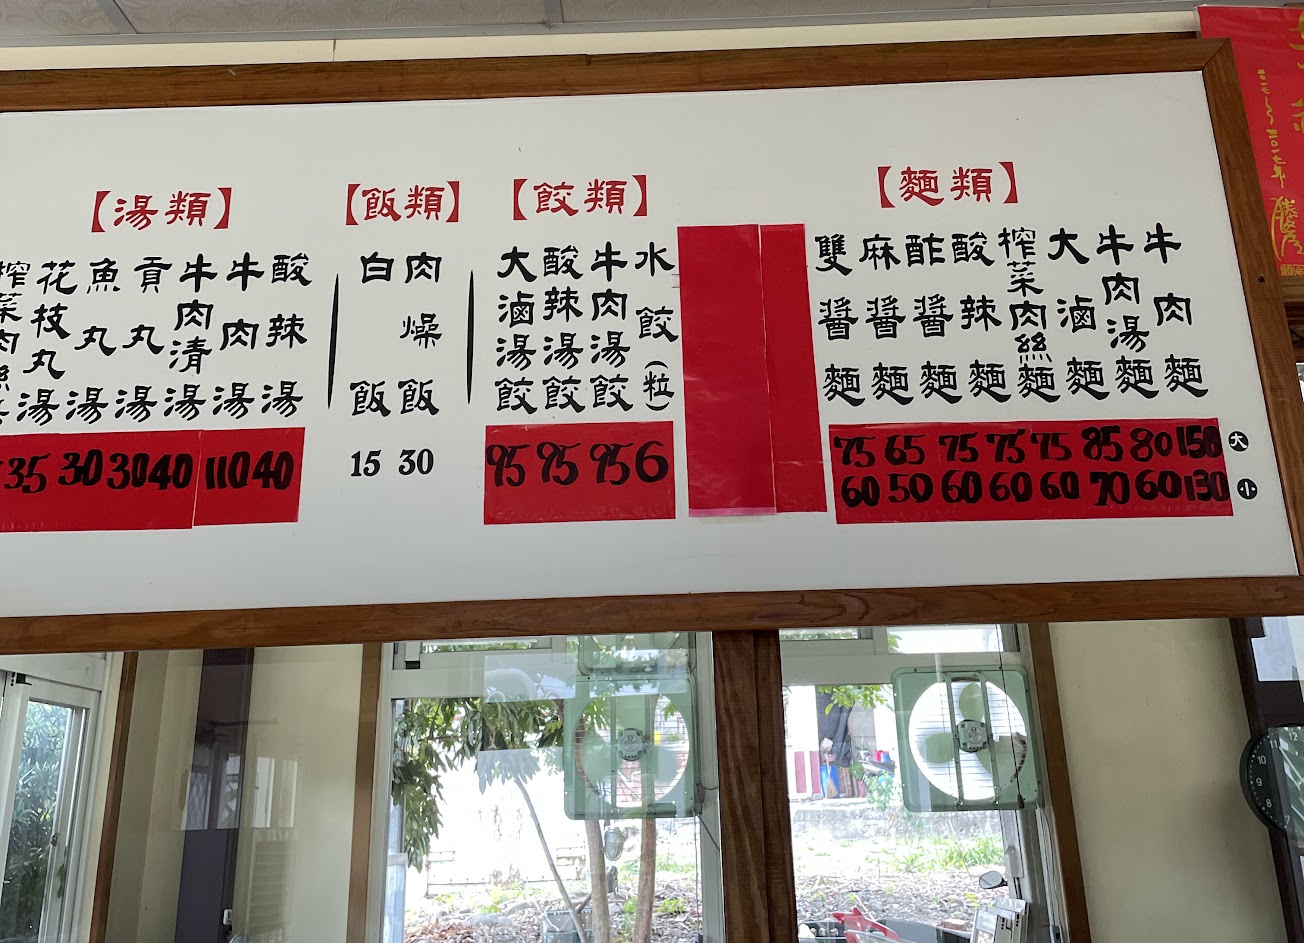 【麵類】
牛肉麵
牛肉湯麵
大滷麵
榨菜肉絲麵
酸辣麵
酢醬麵
麻醬麵
雙醬麵
75 65 75 75 75 85 80 150 大
60 50 60 60 60 70 60 130 小
【餃類】
水餃(粒)
牛肉湯餃
酸辣湯餃
大滷湯餃
95 95 95 6
【飯類】
肉燥飯
白飯
15 30
【湯類】
酸辣湯
牛肉湯
牛肉清湯
貢丸湯
魚丸湯
花枝丸湯
榨菜肉絲
35 30 30 40 110 40
二〇一七年
10
9
8